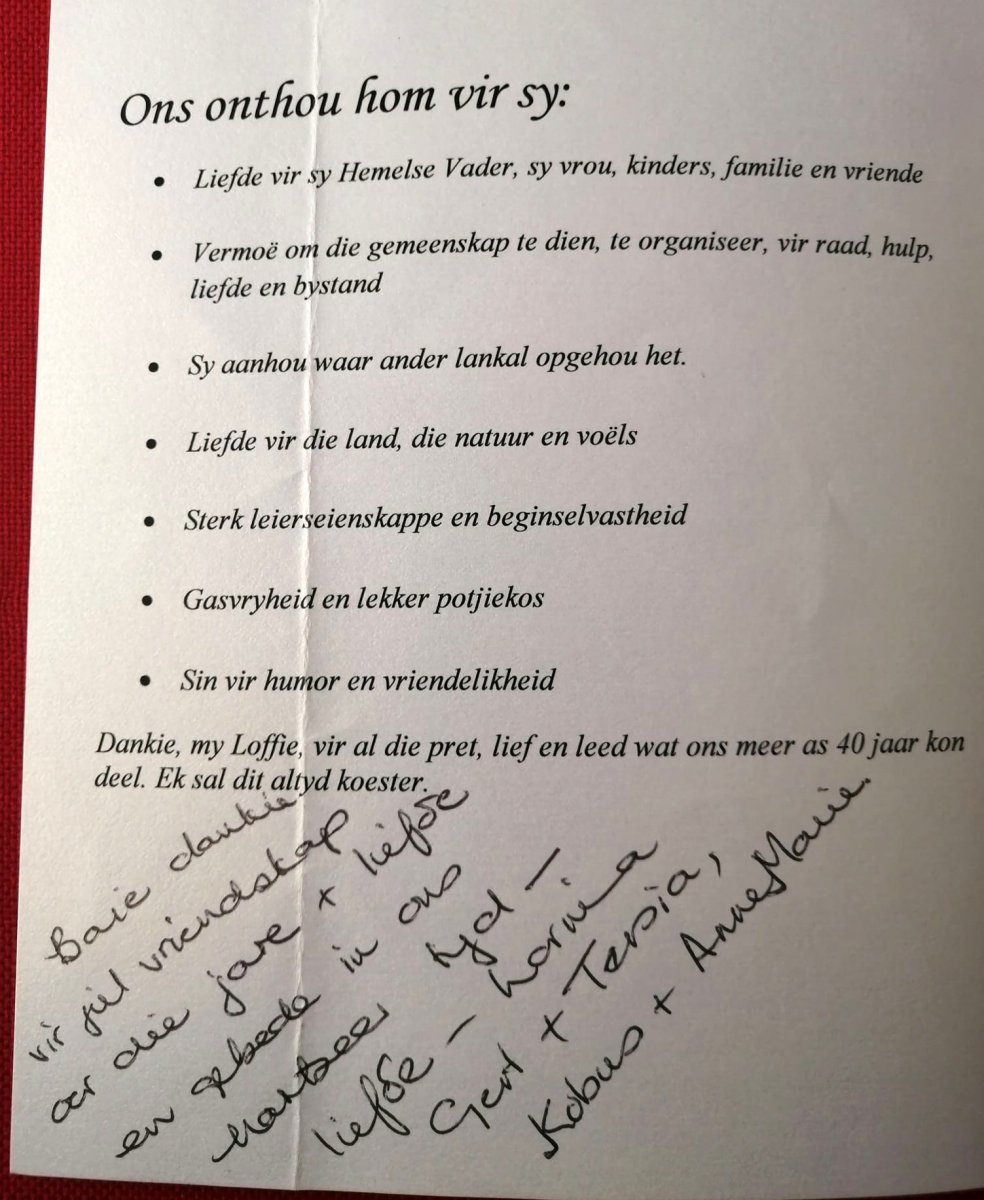 Ons onthou hom vir sy:
• Liefde vir sy Hemelse Vader, sy vrou, kinders, familie en vriende
• Vermoë om die gemeenskap te dien, te organiseer, vir raad, hulp,
liefde en bystand
• Sy aanhou waar ander lankal opgehou het.
• Liefde vir die land, die natuur en voëls
• Sterk leierseienskappe en beginselvastheid
• Gasvryheid en lekker potjiekos
• Sin vir humor en vriendelikheid
Dankie, my Loffie, vir al die pret, lief en leed wat ons meer as 40 jaar kon
deel. Ek sal dit altyd koester.
Baie dankie
vir vriendskap
oor die jare + liefde
en gebede in ons
hartseer tyd –
liefde – Lorina
Gert + Tersia,
Kobus + AnneMarie.